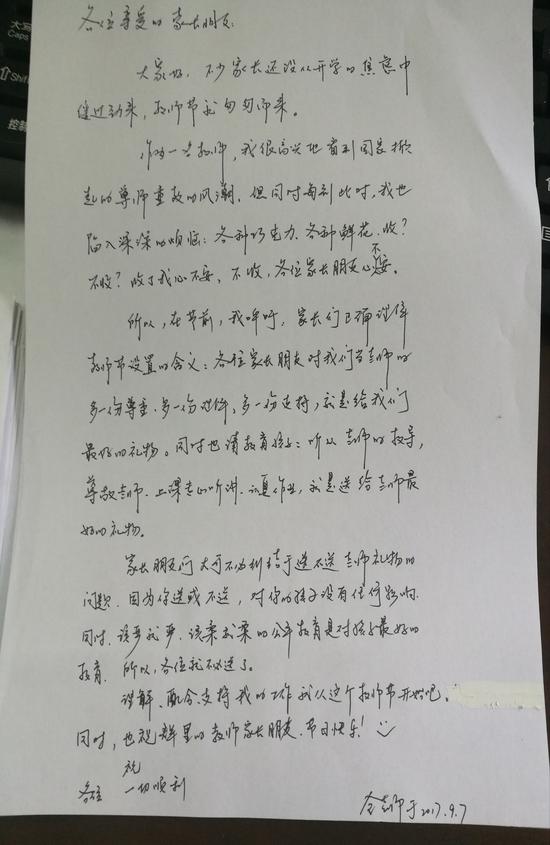 各位亲爱的家长朋友:
大家好,不少家长还没从开学的焦虑中
缓过劲来,教师节就匆匆而来。
作为一名教师,我很高兴地看到国家掀
起的尊师重教的风潮,但同时每到此时,我也
陷入深深的烦恼:各种巧克力、各种鲜花,收?
不收?收了我心不安,不收,各位家长朋友心不安。
所以,在节前,我呼吁,家长们正确理解
教师节设置的含义:各位家长朋友对我们当老师的
多一份尊重、多一份理解,多一份支持,就是给我们
最好的礼物。同时也请教育孩子:听从老师的教导,
尊敬老师、上课专心听讲、认真作业,就是送给老师最
好的礼物。
家长朋友们大可不必纠结于送不送老师礼物的
问题,因为你送或不送,对你的孩子没有任何影响,
同时,该严就严、该柔就柔的公平教育是对孩子最好的
教育,所以,各位就不必送了。
理解、配合、支持我的工作就从这个教师节开始吧。
同时,也祝群里的教师家长朋友,节日快乐!
祝
各位 一切顺利
老师于2017.9.7